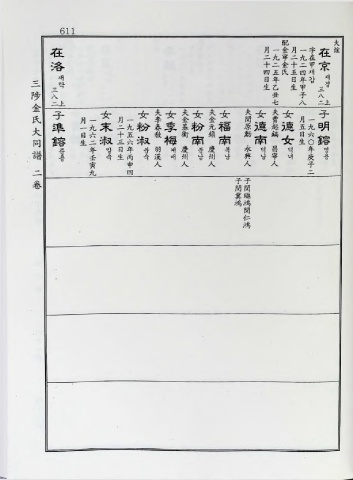 611
夫餘
在京 재경 三八二 上
字在甲 재갑
一九二四年甲子八
月二十五日生
配金寧金氏
一九二五年乙丑七
月二十四日生
子明鎔 명용
一九六〇年庚子二
月五日生
女德女 덕녀
夫曺起煥 昌寧人
女德南 덕남
夫閔原勳 永興人
子閔繼鴻 閔仁鴻
子閔冀鴻
女福南 복남
夫金光鎭 慶州人
女粉南 분남
夫金基衡 慶州人
女季梅 계매
夫李春發 羽溪人
女粉淑 분숙
一九五六年丙申四
月二十三日生
女末淑 말숙
一九六二年壬寅九
月一日生
在洛 재락 三八二 上
子準鎔 준용
三陟金氏大同譜 二卷